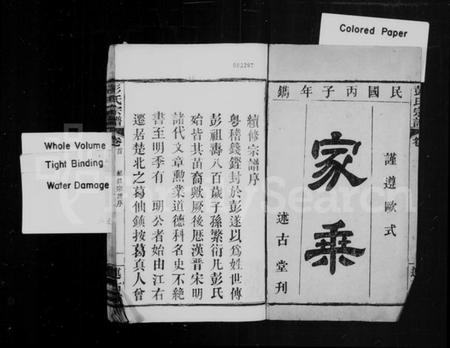 Colored Paper
Whole Volume
Tight Binding
Water Damage
民國丙子年鐫
謹遵歐式
家乘
述古堂刊
續修宗譜序
粵稽錢鏗封於彭遂以為姓世傳
彭祖壽八百歲子孫繁衍凡彭氏
始皆其苗裔歟厥後歷漢晉宋明
諸代文章勲業道德科名史不絕
書至明季有 明公者始由江右
遷居楚北之葛仙鎮按葛真人曾
彭氏宗譜
卷首
續修宗譜序